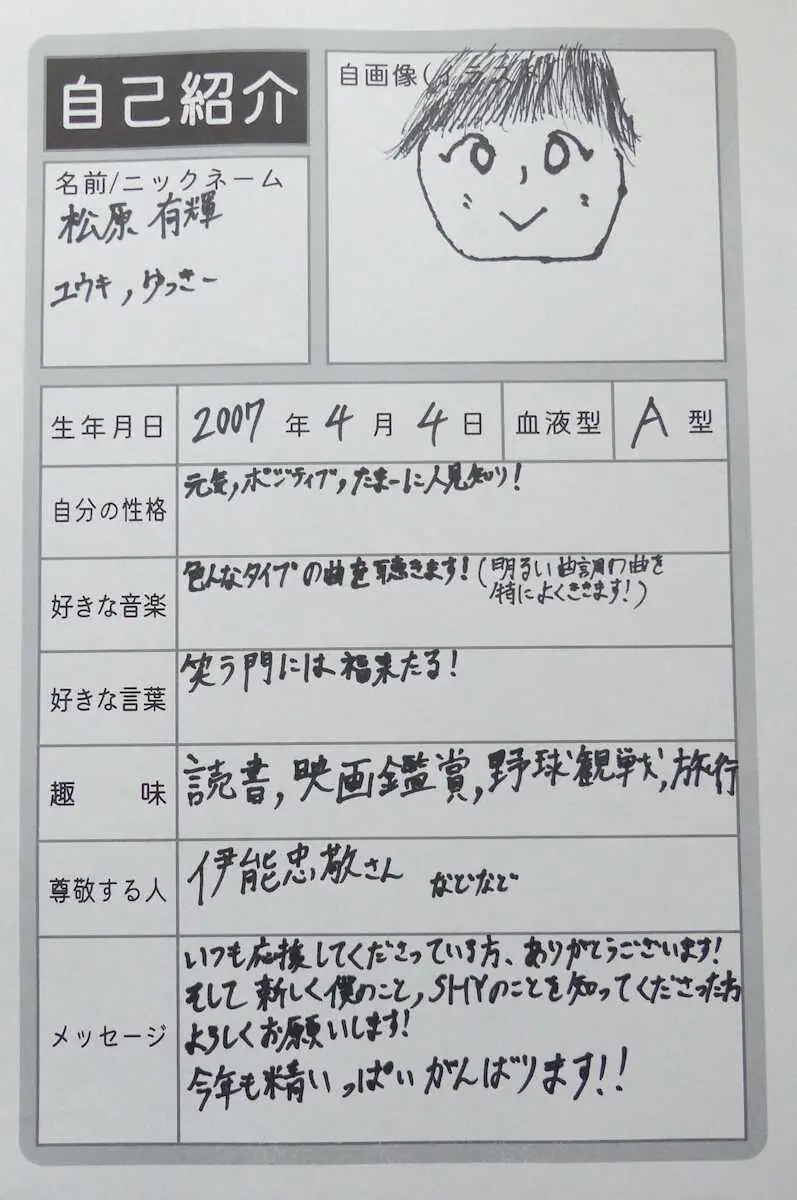 自己紹介
自画像(イラスト)
名前/ニックネーム
松原 有輝
ユウキ, ゆっきー
生年月日 2007年4月4日 血液型 A型
自分の性格 元気,ポジティブ,たまーに人見知り!
好きな音楽 色んなタイプの曲を聴きます!(明るい曲調の曲を
特によくききます!)
好きな言葉 笑う門には福来たる!
趣味 読書,映画鑑賞,野球観戦,旅行
尊敬する人 伊能忠敬さん などなど
メッセージ
いつも応援してくださっている方、ありがとうございます!
そして新しく僕のこと,SHYのことを知ってくださった方
よろしくお願いします!
今年も精いっぱいがんばります!!